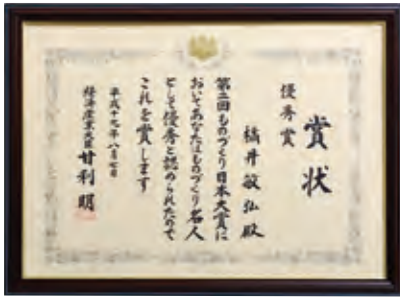 賞状
優秀賞
橋井敏弘殿
第二回ものづくり日本大賞に
おいてあなたはものづくり名人
として優秀と認められたので
これを賞します
平成十九年八月七日
経済産業大臣 甘利明